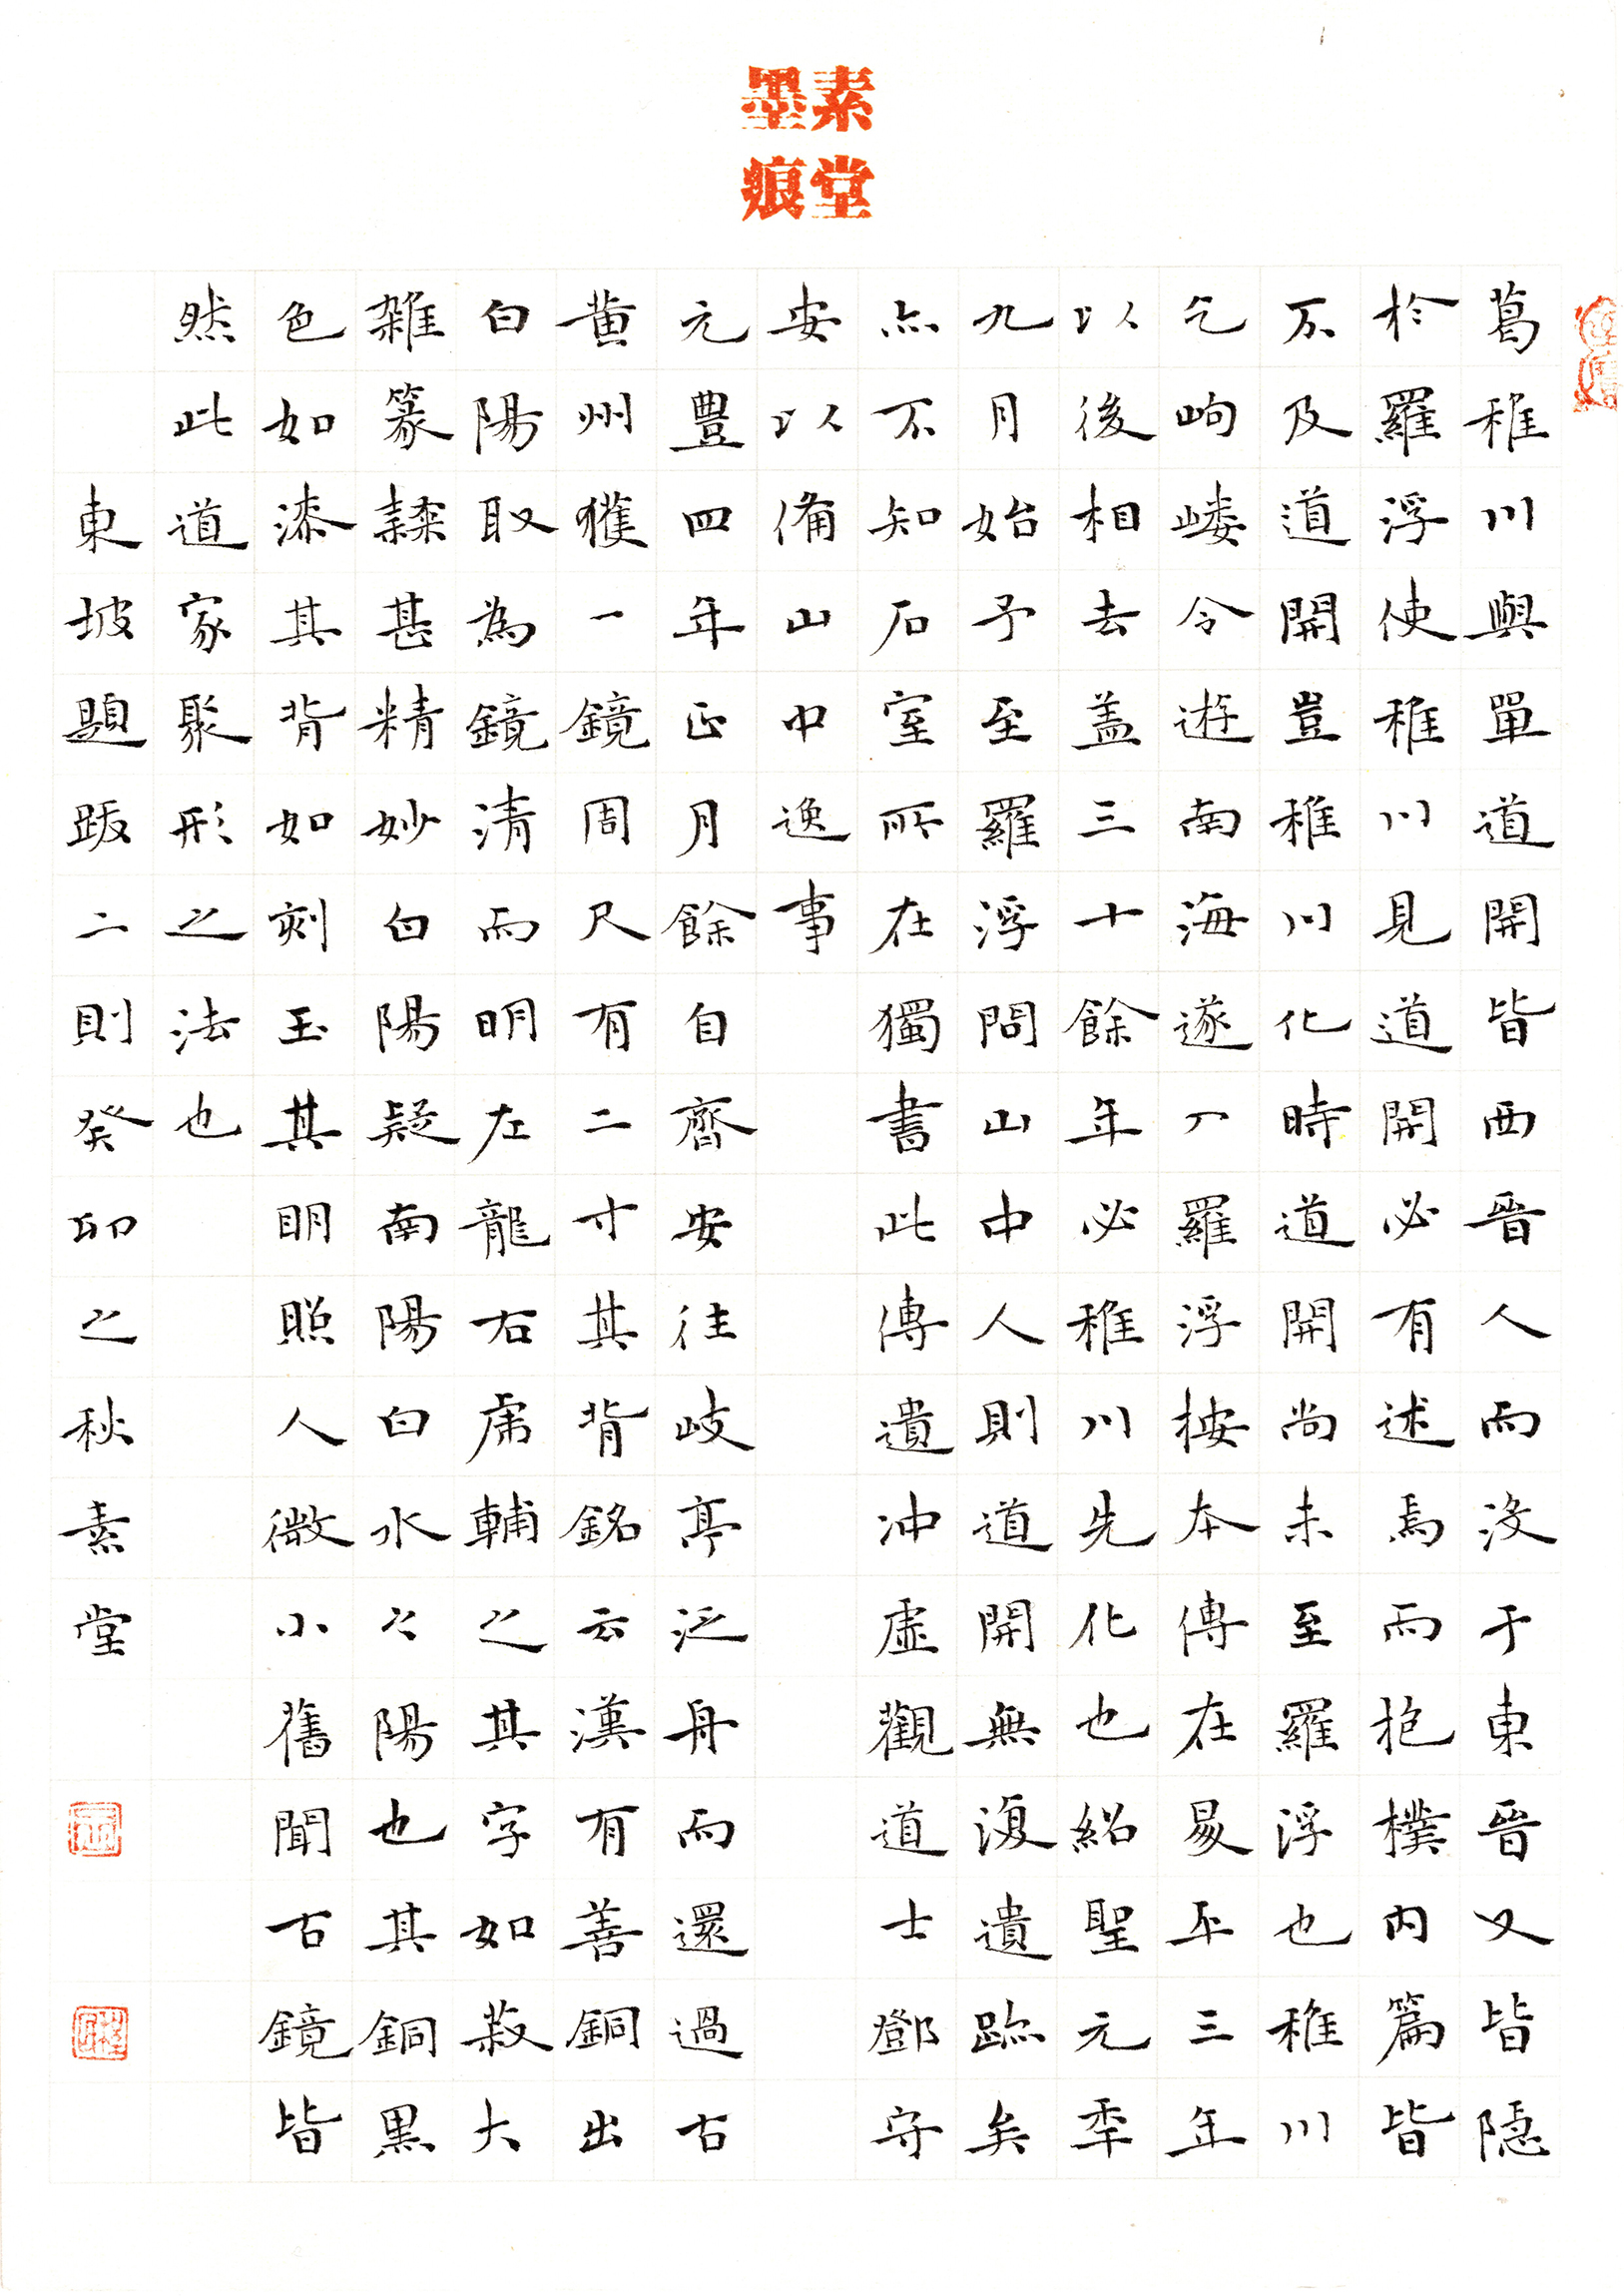 素堂
墨痕
葛稚川與單道開皆西晉人而沒于東晉又皆隱
於羅浮使稚川見道開必有述焉而抱樸內篇皆
不及道開豈稚川化時道開尚未至羅浮也稚川
乞岣嶁令遊南海遂入羅浮按本傳在昇平三年
以後相去盖三十餘年必稚川先化也紹聖元年
九月始予至羅浮問山中人則道開無復遺跡矣
亦不知石室所在獨書此傳遺沖虛觀道士鄧守
安以備山中逸事
元豐四年正月餘自齊安往岐亭泛舟而還過古
黄州獲一鏡周尺有二寸其背銘云漢有善銅出
白陽取為鏡清而明左龍右虎輔之其字如菽大
雜篆隸甚精妙白陽疑南陽白水之陽也其銅黑
色如漆其背如刻玉其明照人微小舊聞古鏡皆
然此道家聚形之法也
東坡題跋二則癸卯之秋素堂